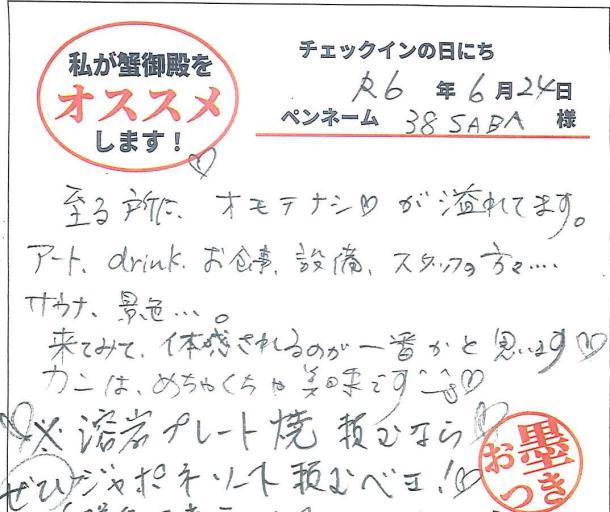 私が蟹御殿を
オススメ
します！
チェックインの日にち
R6 年 6月24日
ペンネーム 38 SABA 様
至る所に、オモテナシ♡が溢れてます。
アート、drink、お食事、設備、スタッフの方々‥‥
サウナ、景色…。
来てみて、体感されるのが一番かと思います♡
カニは、めちゃくちゃ美味です♡
※溶岩プレート焼 頼むなら
ぜひジャポネソート頼むベエ!♡
お墨つき